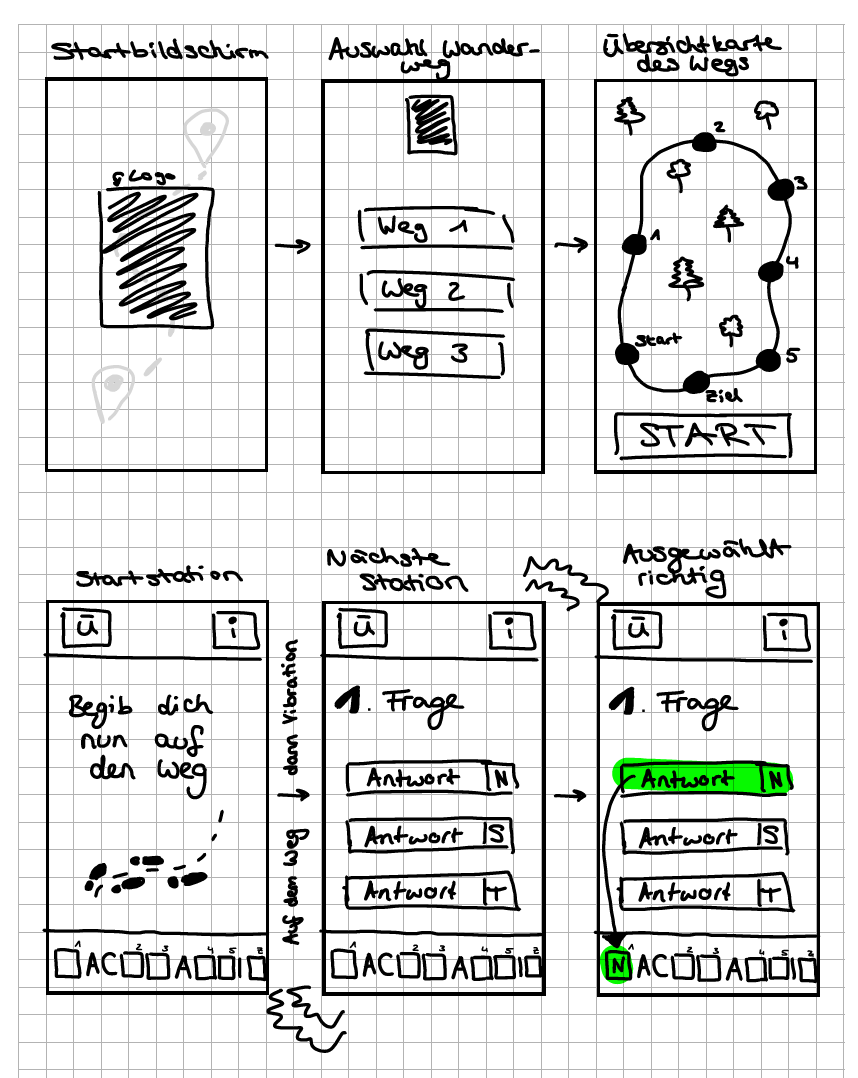 Startbildschirm
Logo
Auswahl Wander-
weg
Weg 1
Weg 2
Weg 3
Übersichtkarte
des Wegs
2
3
1
4
Start
5
Ziel
START
Startstation
Ü i
Begib dich
nun auf
den Weg
1 2 3 4 5 Z
AC A I
Auf dem Weg dann Vibration
Nächste
Station
Ü i
1. Frage
Antwort N
Antwort S
Antwort T
1 2 3 4 5 Z
AC A I
Ausgewählt
richtig
Ü i
1. Frage
Antwort N
Antwort S
Antwort T
1 2 3 4 5 Z
N AC A I